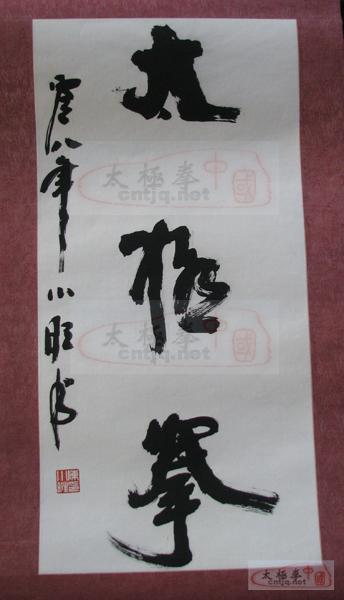 太極拳
零八年小旺书
太極拳 中國
cntjq.net
太極拳 中國
cntjq.net
太極拳 中國
cntjq.net